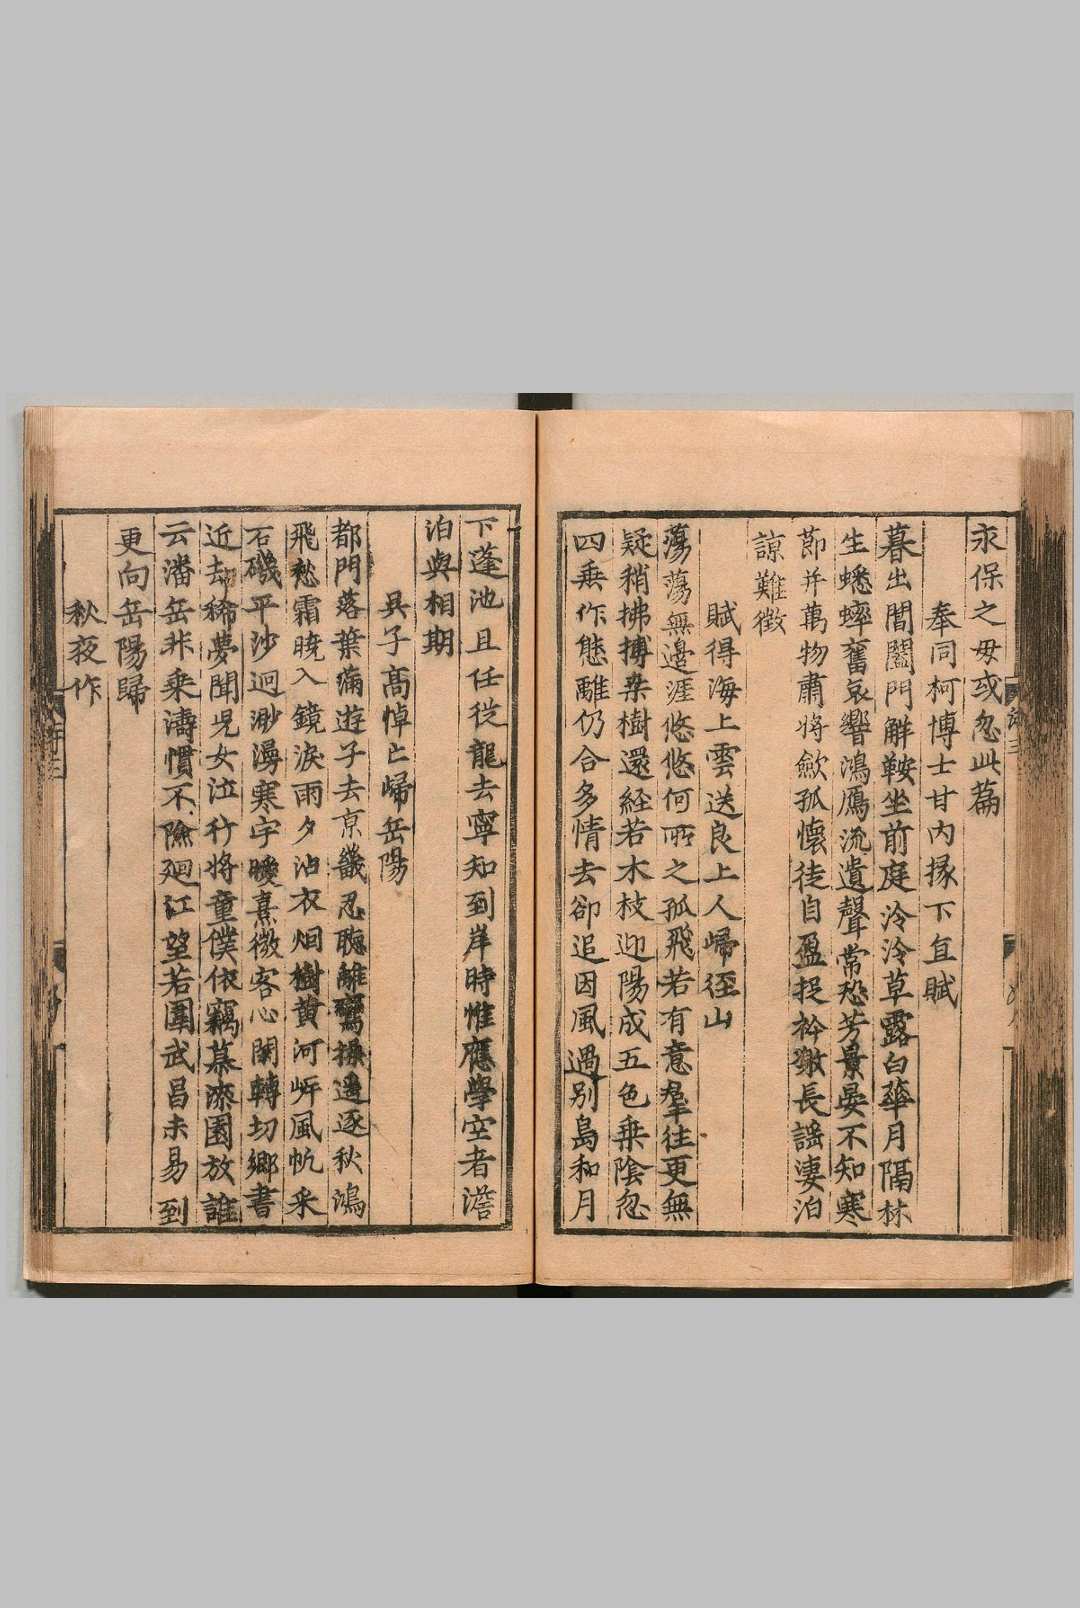 永保之毋或忽此篇
奉同柯博士甘内掾下直賦
暮出閶闔門解鞍坐前庭泠泠草露白華月隔林
生蟋蟀奮哀響鴻鴈流遺聲常恐芳景晏不知寒
節并萬物肅將歛孤懷徒自盈捉衿發長謡淒泊
諒難徵
賦得海上雲送良上人歸径山
蕩蕩無邊涯悠悠何所之孤飛若有意羣往更無
疑稍拂摶桒樹還経若木枝迎陽成五色乗陰忽
四乗作態離仍合多情去卻追因風過别島和月
下蓬池且任従龍去寧知到岸時惟應學空者澹
泊與相期
吳子髙悼亡歸岳陽
都門落葉滿遊子去京畿忍聴離鸞操遥逐秋鴻
飛愁霜曉入鏡淚雨夕沾衣烟樹黄河岍風帆采
石磯平沙迥渺漫寒宇曖熹微客心關轉切郷書
近去稀夢聞児女泣行將童僕依竊慕漆園放誰
云潘岳非乗濤慣不險廻江望若圍武昌未易到
更向岳陽歸
秋夜作